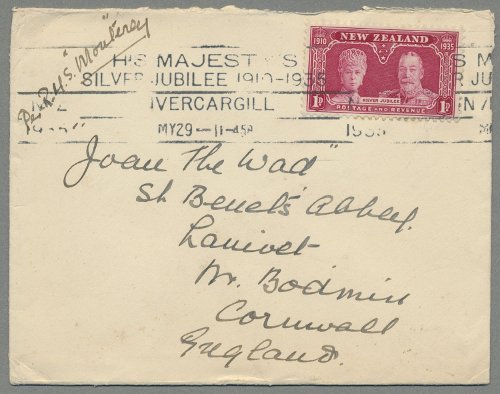 Per R.H.S. "Monterey"
HIS MAJESTY'S
SILVER JUBILEE 1910-1935
INVERCARGILL
MY29 — 11-45A
1935
NEW ZEALAND
1910 1935
SILVER JUBILEE
1D 1D
POSTAGE AND REVENUE
Joan The Wad"
St Benet's Abbey.
Lanivet
Nr. Bodmin
Cornwall
England.